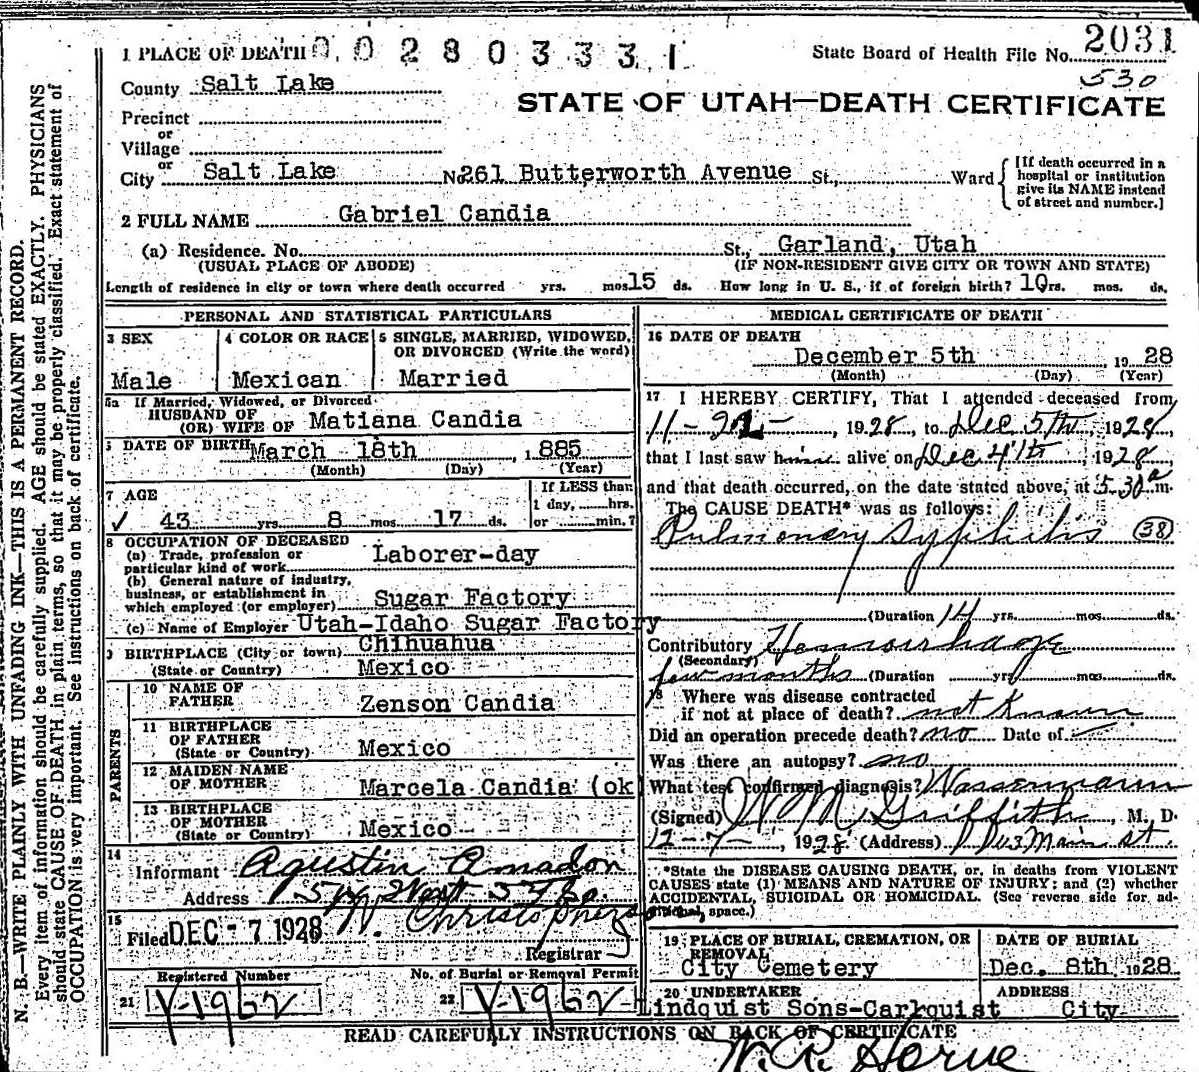 1 PLACE OF DEATH 0 0 2 8 0 3 3 3 1
State Board of Health File No. 2031
530
County Salt Lake
STATE OF UTAH—DEATH CERTIFICATE
Precinct
or
Village
or
City Salt Lake No. 261 Butterworth Avenue St., Ward
[If death occurred in a
hospital or institution
give its NAME instead
of street and number.]
2 FULL NAME Gabriel Candia
(a) Residence. No. St., Garland, Utah
(USUAL PLACE OF ABODE) (IF NON-RESIDENT GIVE CITY OR TOWN AND STATE)
Length of residence in city or town where death occurred yrs. mos. 15 ds. How long in U. S., if of foreign birth? 10 yrs. mos. ds.
PERSONAL AND STATISTICAL PARTICULARS
3 SEX
Male
4 COLOR OR RACE
Mexican
5 SINGLE, MARRIED, WIDOWED,
OR DIVORCED (Write the word)
Married
5a If Married, Widowed, or Divorced
HUSBAND OF
(OR) WIFE OF Matiana Candia
6 DATE OF BIRTH March 18th, 1885
(Month) (Day) (Year)
7 AGE
✓ 43 yrs. 8 mos. 17 ds.
If LESS than
1 day, hrs.
or min.?
8 OCCUPATION OF DECEASED
(a) Trade, profession or
particular kind of work Laborer-day
(b) General nature of industry,
business, or establishment in
which employed (or employer) Sugar Factory
(c) Name of Employer Utah-Idaho Sugar Factory
9 BIRTHPLACE (City or town) Chihuahua
(State or Country) Mexico
PARENTS
10 NAME OF
FATHER Zenson Candia
11 BIRTHPLACE
OF FATHER
(State or Country) Mexico
12 MAIDEN NAME
OF MOTHER Marcela Candia (ok)
13 BIRTHPLACE
OF MOTHER
(State or Country) Mexico
14
Informant Agustin Amador
Address West
15
Filed DEC - 7 1928 Christopherson
Registrar
Registered Number
21 Y-1962
No. of Burial or Removal Permit
22 Y-1962
MEDICAL CERTIFICATE OF DEATH
16 DATE OF DEATH
December 5th 1928
(Month) (Day) (Year)
17 I HEREBY CERTIFY, That I attended deceased from
11- , 1928, to Dec 5th, 1928,
that I last saw him alive on Dec 4th, 1928
and that death occurred, on the date stated above, at 5.30a m.
The CAUSE DEATH* was as follows:
Pulmonary syphilis (38)
(Duration 14 yrs. mos. ds.
Contributory Hemourhage
(Secondary)
few months (Duration yrs. mos. ds.
18 Where was disease contracted
if not at place of death? not known
Did an operation precede death? no Date of
Was there an autopsy? no
What test confirmed diagnosis? Wassermann
(Signed) W M Griffith, M. D.
12-7-, 1928 (Address) Main st.
*State the DISEASE CAUSING DEATH, or, in deaths from VIOLENT
CAUSES state (1) MEANS AND NATURE OF INJURY; and (2) whether
ACCIDENTAL, SUICIDAL OR HOMICIDAL. (See reverse side for ad-
ditional space.)
19 PLACE OF BURIAL, CREMATION, OR
REMOVAL
City Cemetery
DATE OF BURIAL
Dec. 8th 1928
20 UNDERTAKER
Lindquist Sons-Carlquist
ADDRESS
City
READ CAREFULLY INSTRUCTIONS ON BACK OF CERTIFICATE
W. R. Horne
N. B.—WRITE PLAINLY WITH UNFADING INK—THIS IS A PERMANENT RECORD.
Every item of information should be carefully supplied. AGE should be stated EXACTLY. PHYSICIANS
should state CAUSE OF DEATH in plain terms, so that it may be properly classified. Exact statement of
OCCUPATION is very important. See instructions on back of certificate.